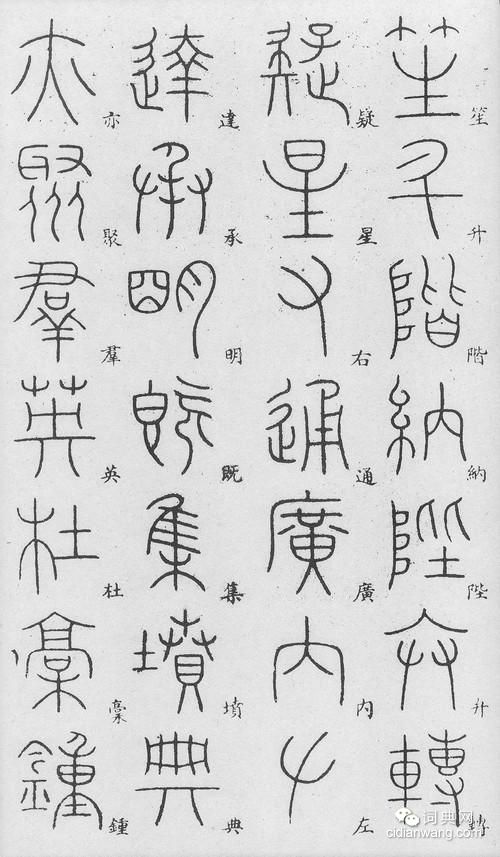 笙升階納陛弁轉
疑星右通廣内左
達承明既集墳典
亦聚羣英杜稾鍾
词典网
cidianwang.com